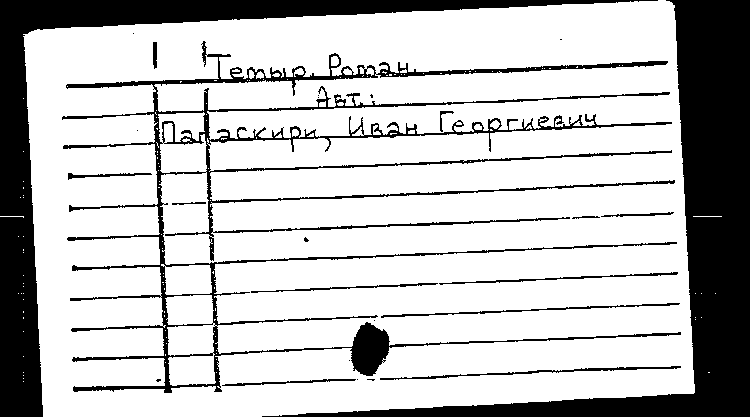 Темыр. Роман.
Авт.:
Папаскири, Иван Георгиевич